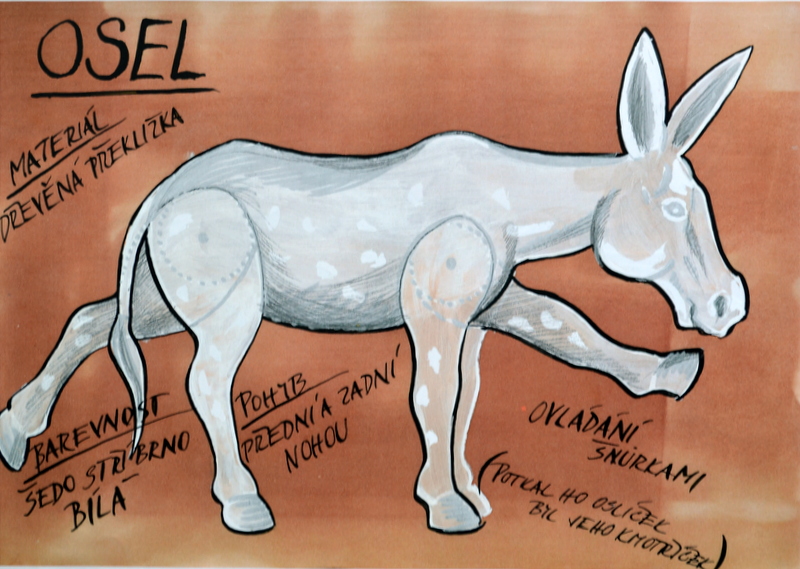 OSEL
MATERIÁL
DŘEVĚNÁ PŘEKLIŽKA
BAREVNOST
ŠEDO STŘÍBRNO
BÍLÁ
POHYB
PŘEDNÍ A ZADNÍ
NOHOU
OVLÁDÁNÍ
ŠŇŮRKAMI
(POTKAL HO OSLÍČEK
BYL JEHO KMOTŘÍČEK)